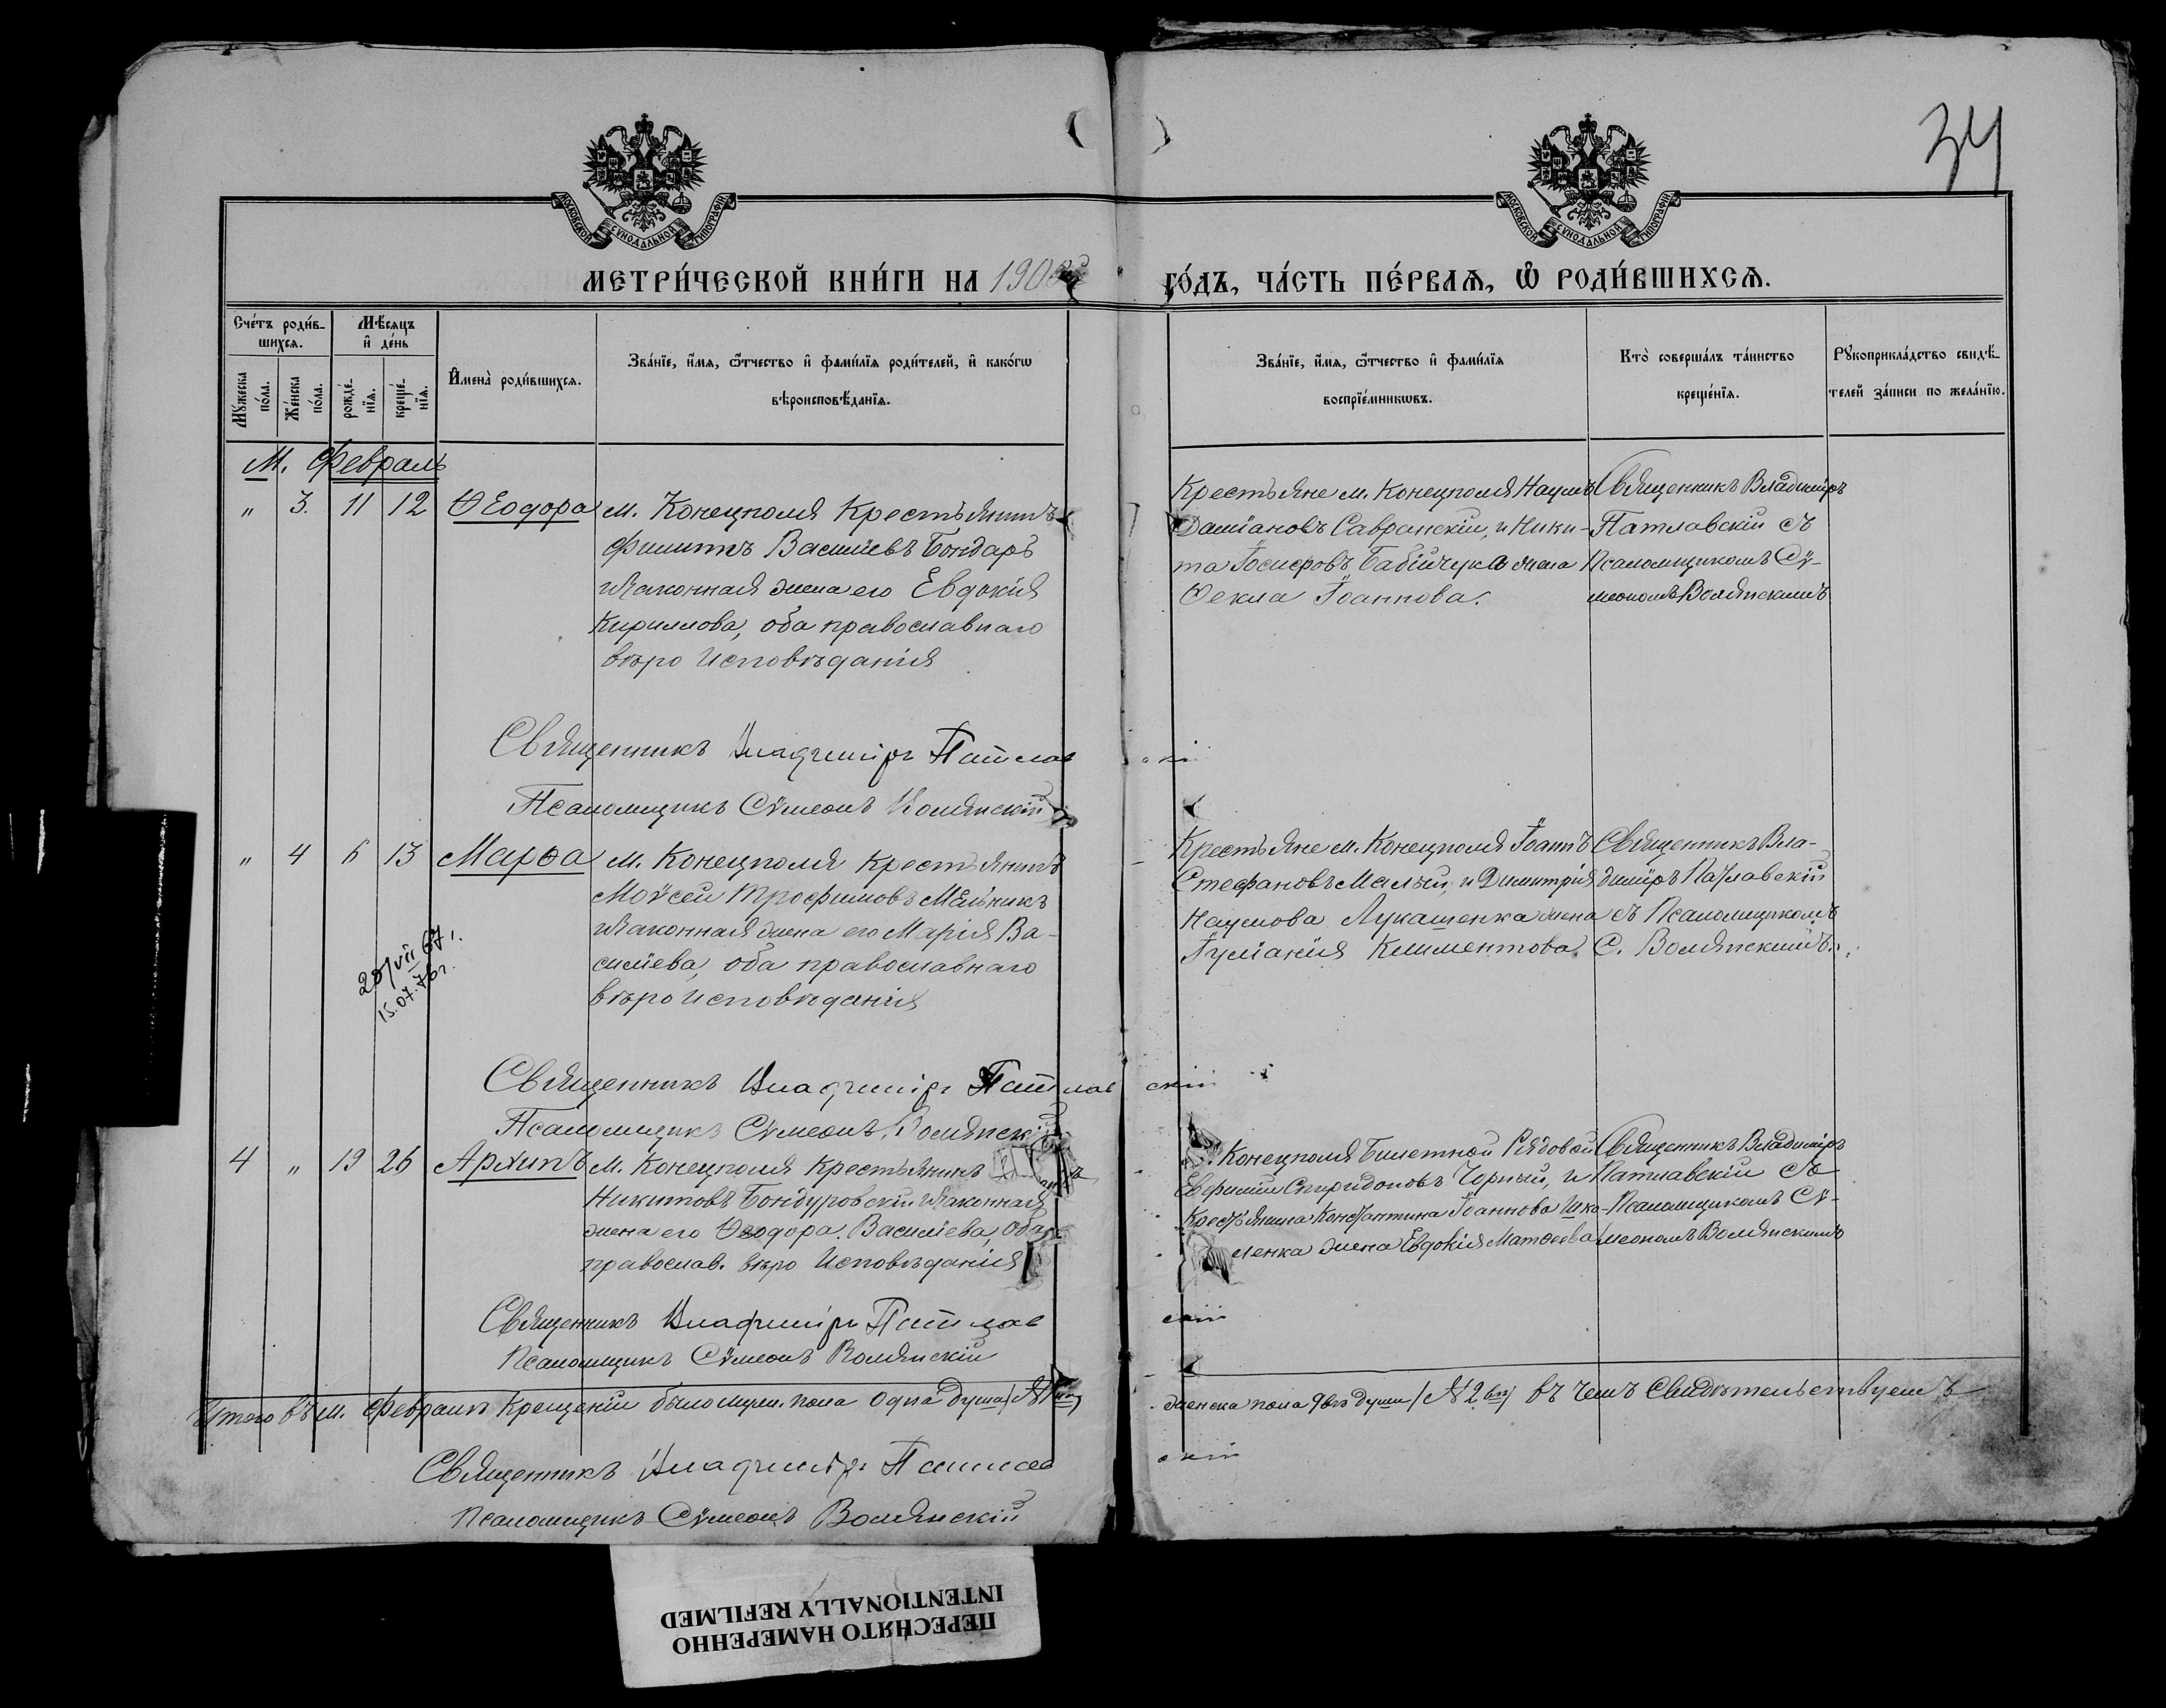 34
МОСКОВСКОЙ СѴНОДАЛЬНОЙ ТИПОГРАФІИ
МОСКОВСКОЙ СѴНОДАЛЬНОЙ ТИПОГРАФІИ
МЕТРИ́ЧЕСКОЙ КНИ́ГИ НА 190
ГО́ДЪ, ЧА́СТЬ ПЕ́РВАѦ, Ѡ҆ РОДИ́ВШИХСѦ.
Сче́тъ роди́в-
шихсѧ.
Мꙋ́жеска по́ла.
Же́нска по́ла.
Мѣ́сѧцъ
и҆ де́нь
рожде́-
нїѧ.
креще́-
нїѧ.
И҆мена̀ роди́вшихсѧ.
Зва́нїе, и҆́мѧ, ѻ҆́тчество и҆ фами́лїѧ роди́телей, и҆ како́гѡ
вѣроисповѣ́данїѧ.
Зва́нїе, и҆́мѧ, ѻ҆́тчество и҆ фами́лїѧ
воспрїе́мникѡвъ.
Кто̀ соверша́лъ та́инство
креще́нїѧ.
Рꙋкоприкла́дство свидѣ́-
телей за́писи по жела́нїю.
М. Февраль
" 3. 11 12 Ѳеодора
м. Конецполя Крестьянинъ
Филиппъ Васильевъ Бондаръ
и законная жена его Евдокія
Кириллова, оба православнаго
вѣро Исповѣданія
Крестьяне м. Конецполя Наумъ
Даміановъ Савранскій, и Ники-
та Іосифовъ Бабійчука жена
Ѳекла Іоаннова.
Священникъ Владиміръ
Патлавскій съ
Псаломщикомъ Сѵ-
меономъ Волянскимъ
Священникъ Владиміръ Патлавскій
Псаломщикъ Сѵмеонъ Волянскій
" 4 6 13 Марѳа
м. Конецполя Крестьянинъ
Моѵсей Трофимовъ Мельникъ
и законная жена его Марія Ва-
сильева, оба православнаго
вѣро Исповѣданія
20/VII 67г.
15.07.76г.
Крестьяне м. Конецполя Іоаннъ
Стефановъ Малый, и Димитрія
Наумова Лукашенка жена
Іуліанія Климентова.
Священникъ Вла-
диміръ Патлавскій
съ Псаломщикомъ
С. Волянскимъ.
Священникъ Владиміръ Патлавскій
Псаломщикъ Сѵмеонъ Волянскій
4 " 19 26 Архипъ
м. Конецполя Крестьянинъ
Никитовъ Бондуровскій и законная
жена его Ѳеодора Васильева, оба
православ. вѣро Исповѣданія
Конецполя Билетной Рядовой
Евфимій Спиридоновъ Чорный, и
Крестьянина Константина Іоаннова Шко-
ленка жена Евдокія Матѳеева
Священникъ Владиміръ
Патлавскій съ
Псаломщикомъ Сѵ-
меономъ Волянскимъ
Священникъ Владиміръ Патлавскій
Псаломщикъ Сѵмеонъ Волянскій
Итого въ м. Февралѣ Крещеній было муж. пола Одна душа женска пола двѣ души въ чемъ Свидѣтельствуемъ
Священникъ Владиміръ Патлавскій
Псаломщикъ Сѵмеонъ Волянскій
ПЕРЕСНЯТО НАМЕРЕННО
INTENTIONALLY REFILMED